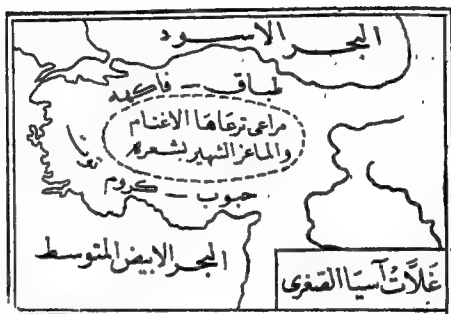 البحر الاسود
طباق - فاكهه
مراعى ترعاها الاغنام
والماعز الشهير بشعره
حبوب - كروم
البحر الابيض المتوسط
غلَّاتُ آسيَا الصّغرى